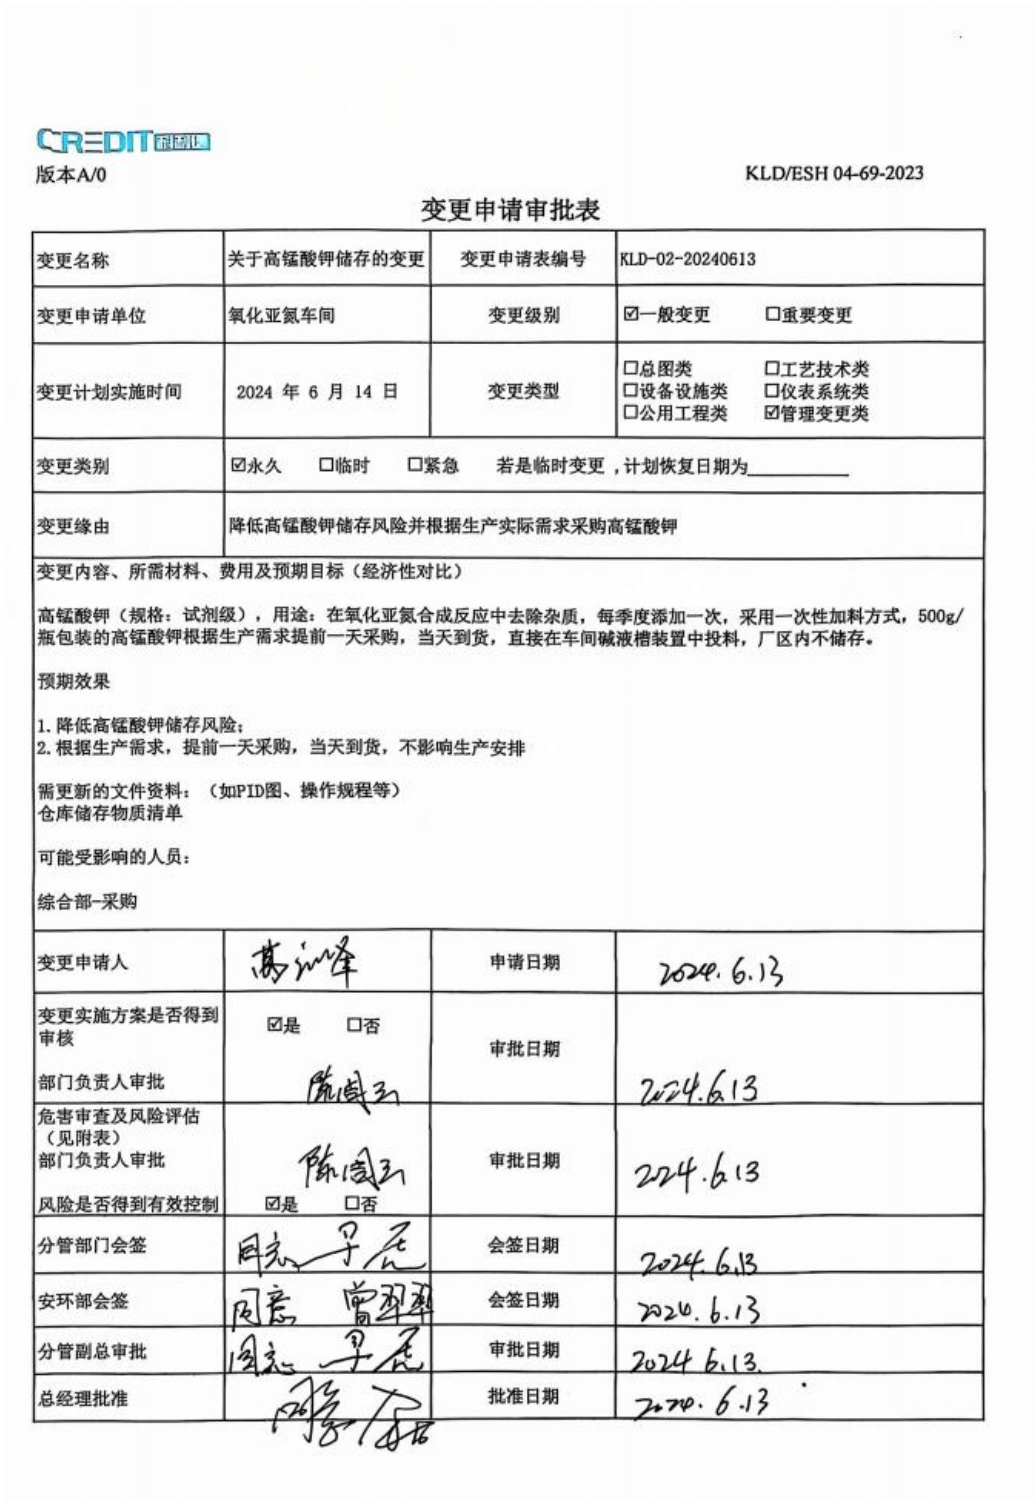 CREDIT科利德
版本A/0
KLD/ESH 04-69-2023
变更申请审批表
变更名称 关于高锰酸钾储存的变更 变更申请表编号 KLD-02-20240613
变更申请单位 氧化亚氮车间 变更级别 ☑一般变更 ☐重要变更
变更计划实施时间 2024 年 6 月 14 日 变更类型
☐总图类 ☐工艺技术类
☐设备设施类 ☐仪表系统类
☐公用工程类 ☑管理变更类
变更类别 ☑永久 ☐临时 ☐紧急 若是临时变更,计划恢复日期为
变更缘由 降低高锰酸钾储存风险并根据生产实际需求采购高锰酸钾
变更内容、所需材料、费用及预期目标（经济性对比）
高锰酸钾（规格：试剂级），用途：在氧化亚氮合成反应中去除杂质，每季度添加一次，采用一次性加料方式，500g/
瓶包装的高锰酸钾根据生产需求提前一天采购，当天到货，直接在车间碱液槽装置中投料，厂区内不储存。
预期效果
1. 降低高锰酸钾储存风险；
2. 根据生产需求，提前一天采购，当天到货，不影响生产安排
需更新的文件资料：（如PID图、操作规程等）
仓库储存物质清单
可能受影响的人员：
综合部-采购
变更申请人 申请日期 2024.6.13
变更实施方案是否得到
审核 ☑是 ☐否
审批日期
部门负责人审批 2024.6.13
危害审查及风险评估
（见附表）
部门负责人审批 审批日期 2024.6.13
风险是否得到有效控制 ☑是 ☐否
分管部门会签 同意 会签日期 2024.6.13
安环部会签 同意 曾翠翠 会签日期 2024.6.13
分管副总审批 同意 审批日期 2024 6.13.
总经理批准 同意 批准日期 2024.6.13